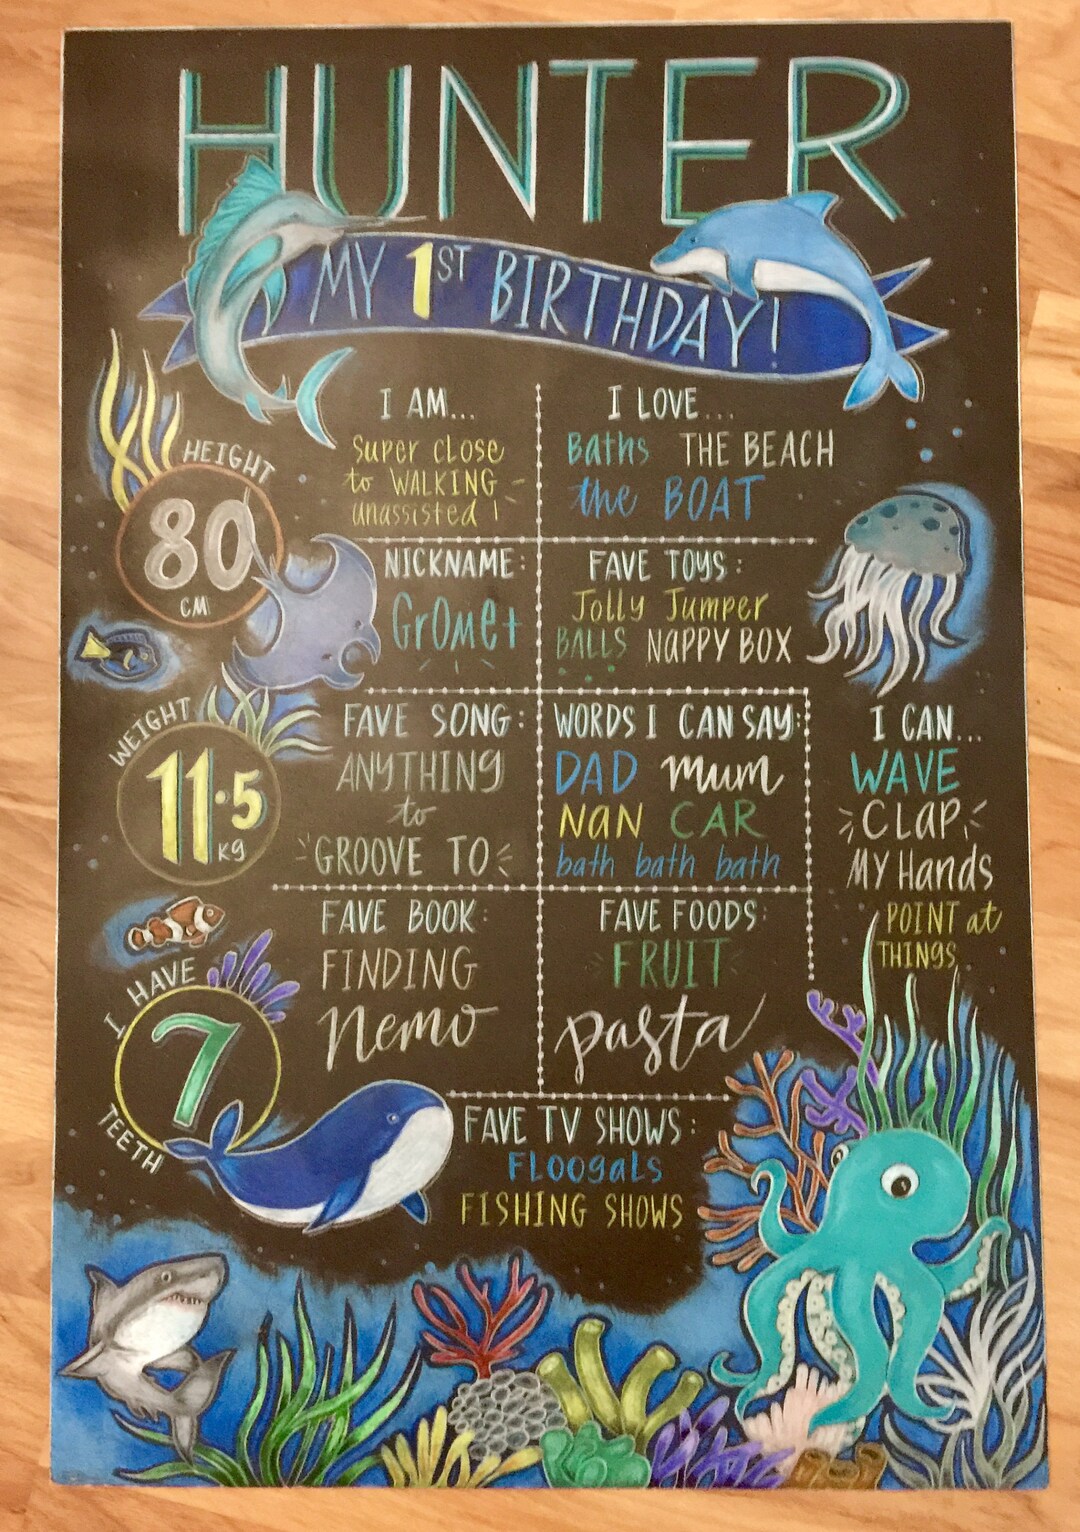 HUNTER
MY 1ST BIRTHDAY!
I AM...
Super close
to WALKING
unassisted!
I LOVE...
Baths THE BEACH
the BOAT
HEIGHT
80
CM
NICKNAME:
GrOMet
FAVE TOYS:
Jolly Jumper
BALLS NAPPY BOX
WEIGHT
11.5
kg
FAVE SONG:
ANYTHING
to
GROOVE TO
WORDS I CAN SAY:
DAD mum
NAN CAR
bath bath bath
I CAN...
WAVE
CLAP
MY Hands
POINT at
THINGS
I HAVE
7
TEETH
FAVE BOOK:
FINDING
Nemo
FAVE FOODS:
FRUIT
pasta
FAVE TV SHOWS:
FLOOgaLS
FISHING SHOWS